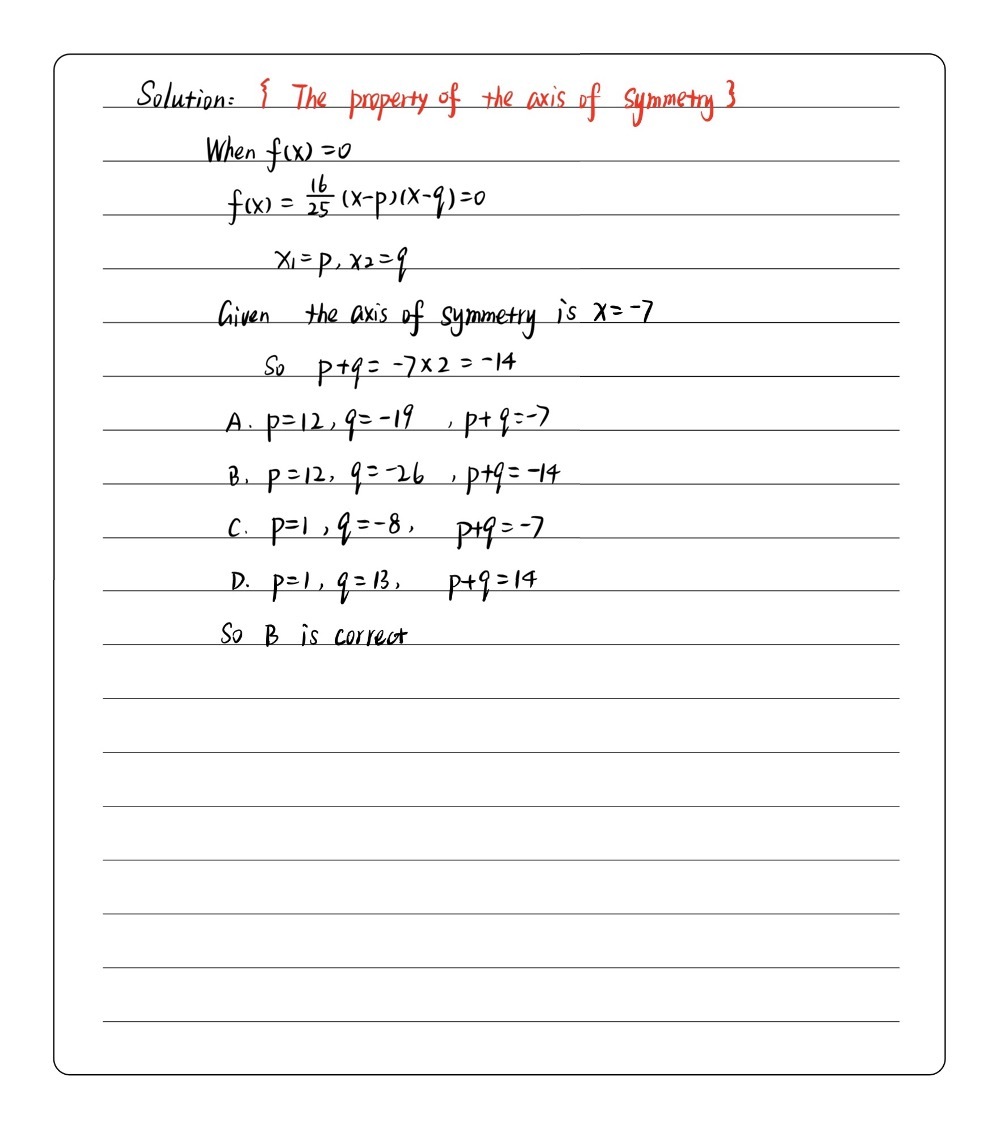 Solution: { The property of the axis of symmetry }
When f(x) = 0
f(x) = 16/25 (x-p)(x-q) = 0
x1 = p, x2 = q
Given the axis of symmetry is x = -7
So p+q = -7×2 = -14
A. p=12, q=-19 , p+q=-7
B. p=12, q=-26 , p+q=-14
C. p=1, q=-8, p+q=-7
D. p=1, q=13, p+q=14
So B is correct